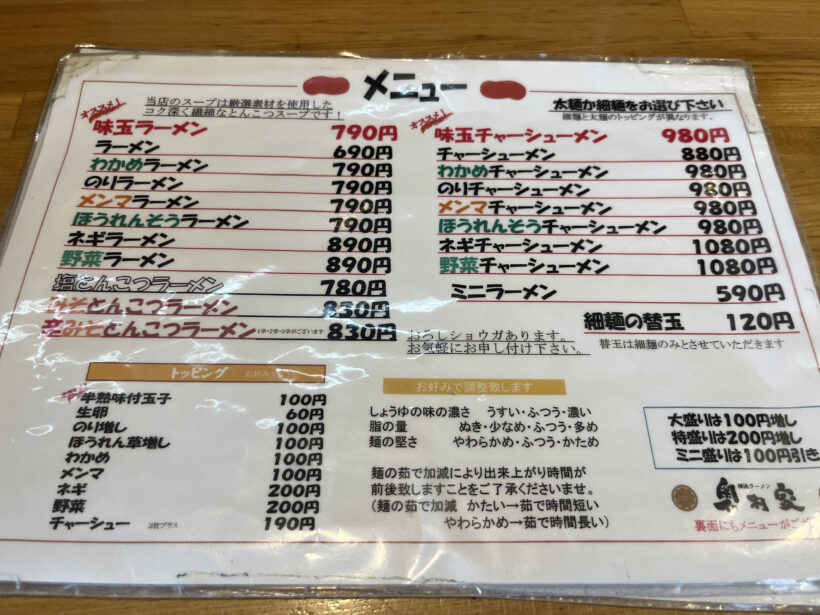 メニュー
当店のスープは厳選素材を使用した
コク深く繊細なとんこつスープです！
オススメ！
味玉ラーメン 790円
ラーメン 690円
わかめラーメン 790円
のりラーメン 790円
メンマラーメン 790円
ほうれんそうラーメン 790円
ネギラーメン 890円
野菜ラーメン 890円
塩とんこつラーメン 780円
みそとんこつラーメン 830円
辛みそとんこつラーメン 1辛・2辛・3辛がございます 830円
太麺か細麺をお選び下さい
細麺と太麺のトッピングが異なります。
オススメ！
味玉チャーシューメン 980円
チャーシューメン 880円
わかめチャーシューメン 980円
のりチャーシューメン 980円
メンマチャーシューメン 980円
ほうれんそうチャーシューメン 980円
ネギチャーシューメン 1080円
野菜チャーシューメン 1080円
ミニラーメン 590円
細麺の替玉 120円
替玉は細麺のみとさせていただきます
おろしショウガあります。
お気軽にお申し付け下さい。
トッピング
半熟味付玉子 100円
生卵 60円
のり増し 100円
ほうれん草増し 100円
わかめ 100円
メンマ 100円
ネギ 200円
野菜 200円
チャーシュー 3枚プラス 190円
お好みで調整致します
しょうゆの味の濃さ うすい・ふつう・濃い
脂の量 ぬき・少なめ・ふつう・多め
麺の堅さ やわらかめ・ふつう・かため
麺の茹で加減により出来上がり時間が
前後致しますことをご了承くださいませ。
（麺の茹で加減 かたい→茹で時間短い
やわらかめ→茹で時間長い）
大盛りは100円増し
特盛りは200円増し
ミニ盛りは100円引き
横浜ラーメン
裏面にもメニューがござ